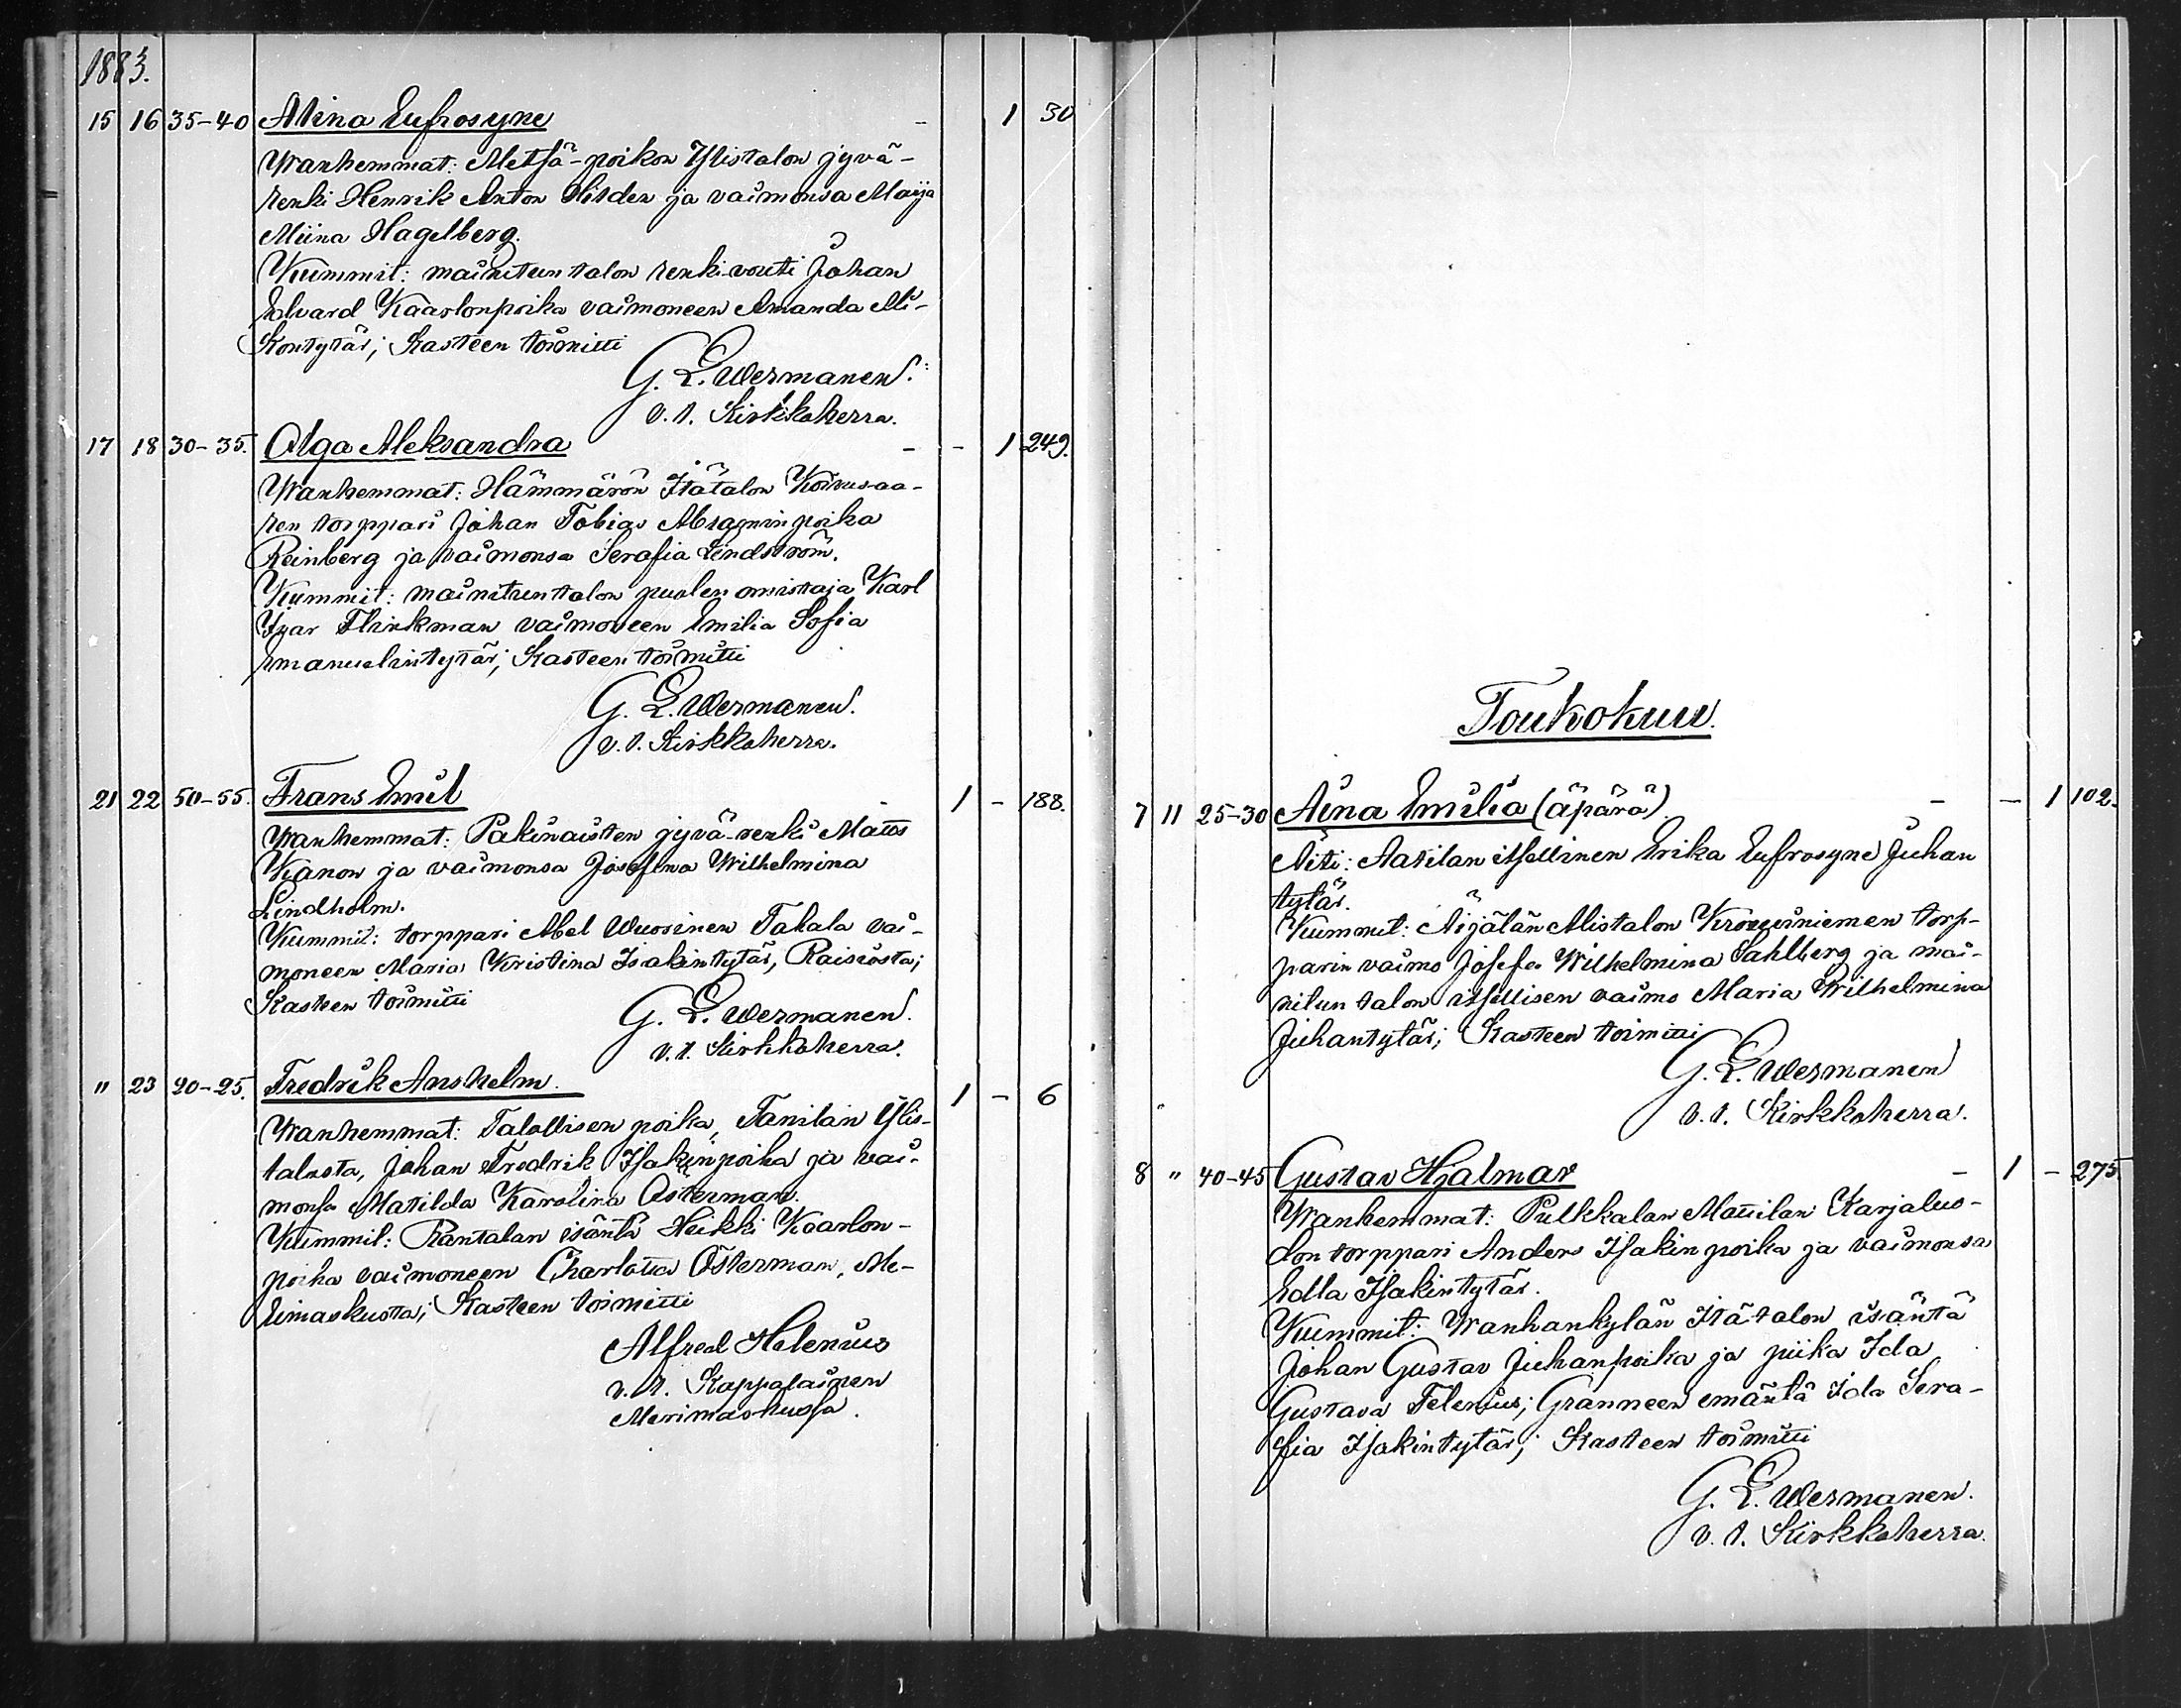 1883.
15 16 35-40 Miina Eufrosyne - 1 30
Wanhemmat: Metsä-poikon Ylistalon jyvä-
renki Henrik Anton Hilden ja vaimonsa Maija
Miina Hagelberg.
Kummit: mainitun talon renki-vouti Johan
Edvard Kaarlonpoika vaimoneen Amanda Mi-
kontytär; Kasteen toimitti
G. E. Wermanen.
v. t. Kirkkoherra.
17 18 30-35. Olga Aleksandra - - 1 249.
Wanhemmat: Hämmärön Itätalon Koivusaa-
ren torppari Johan Tobias Abraminpoika
Reinberg ja vaimonsa Serafia Lindström.
Kummit: mainitun talon puolen omistaja Karl
Ivar Flinkman vaimoneen Emilia Sofia
Emanuelintytär; Kasteen toimitti
G. E. Wermanen.
v. t. Kirkkoherra.
21 22 50-55. Frans Emil - 1 - 188.
Wanhemmat: Pakinaisten jyvä-renki Matts
Kanon ja vaimonsa Josefina Wilhelmina
Lindholm.
Kummit: torppari Abel Wuorinen Takala vai-
moneen Maria Kristina Isakintytär, Raisiosta;
Kasteen toimitti
G. E. Wermanen.
v. t. Kirkkoherra.
" 23 20-25. Fredrik Anshelm. 1 - 6
Wanhemmat: Talollisen poika, Tanilan Ylis-
talosta, Johan Fredrik Isakinpoika ja vai-
monsa Matilda Karolina Österman.
Kummit: Rantalan isäntä Heikki Kaarlon-
poika vaimoneen Charlotta Österman, Me-
rimaskusta; Kasteen toimitti
Alfred Helenius
v. t. Kappalainen
Merimaskussa.
Toukokuu.
7 11 25-30 Aina Emilia (äpärä) - - 1 102.
Äiti: Aatilan itsellinen Erika Eufrosyne Juhan
tytär.
Kummit: Äijälän Alistalon torp-
parin vaimo Josefa Wilhelmina Sahlberg ja mai-
nitun talon itsellisen vaimo Maria Wilhelmina
Juhantytär; Kasteen toimitti
G. E. Wermanen
v. t. Kirkkoherra.
8 " 40-45 Gustav Hjalmar - 1 - 275.
Wanhemmat: Pulkkalan Mattilan Karjaluo-
don torppari Anders Isakinpoika ja vaimonsa
Edla Isakintytär.
Kummit: Wanhankylän Itä-talon isäntä
Johan Gustav Juhanpoika ja piika Ida
Gustava Telenius; Granneen emäntä Ida Sera-
fia Isakintytär; Kasteen toimitti
G. E. Wermanen.
v. t. Kirkkoherra.